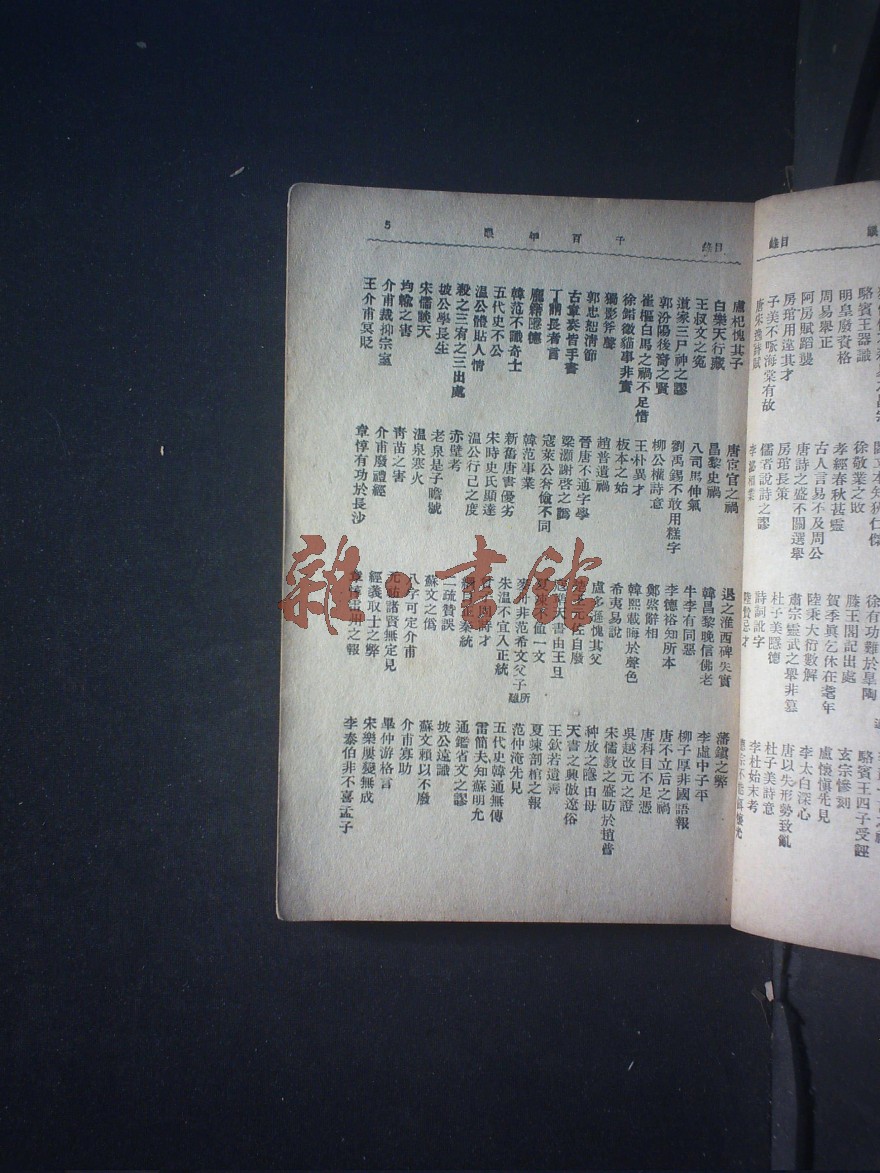 目錄
駱賓王器識 徐敬業之敗 滕王閣記出處 駱賓王四子受誣
明皇廢資格 孝經春秋甚靈 賀季眞乞休在耄年 玄宗慘刻
周易舉正 古人言易不及周公 陸秉大衍數解 盧懷愼先見
阿房賦蹈襲 唐詩之盛不關選舉 肅宗靈武之舉非篡 李太白深心
房琯用違其才 房琯長策 杜子美隱德 唐以失形勢致亂
子美不哌海棠有故 儒者說詩之謬 詩詞訛字 杜子美詩意
李泌相業 陸贄忌才 李杜始末考
目錄 千百年眼 5
盧杞愧其子 唐宦官之禍 退之淮西碑失實 藩鎭之弊
白樂天行藏 昌黎史禍 韓昌黎晚信佛老 李虛中子平
王叔文之冤 八司馬伸氣 牛李有同惡 柳子厚非國語報
道家三尸神之謬 劉禹錫不敢用糕字 李德裕知所本 唐不立后之禍
郭汾陽後裔之賢 柳公權詩意 鄭綮辭相 唐科目不足憑
崔樞白馬之禍不足惜 王朴異才 韓熙載晦於聲色 吳越改元之證
徐鉉徵貓事非實 板本之始 希夷易說 宋儒教之盛昉於趙普
獨影斧聲 趙普遺禍 盧多遜愧其父 种放之隧由母
郭忠恕清節 晉唐不通字學 元佐自廢 天書之興倣遼俗
古章奏皆手書 梁灝謝啓之譌 天書由王旦 王欽若遺善
丁謂長者言 寇萊公奢儉不同 値一文 夏竦剖棺之報
龐籍隱德 韓范事業 麥舟非范希文父子所難 范仲淹先見
韓范不識奇士 新舊唐書優劣 朱溫不宜入正統 五代史韓通無傳
五代史不公 宋時史氏顯達 將才 雷簡夫知蘇明允
溫公體貼人情 溫公行己之度 正秦統 通鑑省文之謬
殺之三宥之三出處 赤壁考 二疏贊誤 坡公遠識
坡公學長生 老泉是子瞻號 蘇文之僞 蘇文賴以不廢
宋儒談天 溫泉寒火 八字可定介甫 介甫寡助
均輸之害 靑苗之害 元祐諸賢無定見 畢仲游格言
介甫裁抑宗室 介甫廢禮經 經義取士之弊 宋樂屢變無成
王介甫冥貶 章惇有功於長沙 章惇雷州之報 李泰伯非不喜孟子
雜·書館